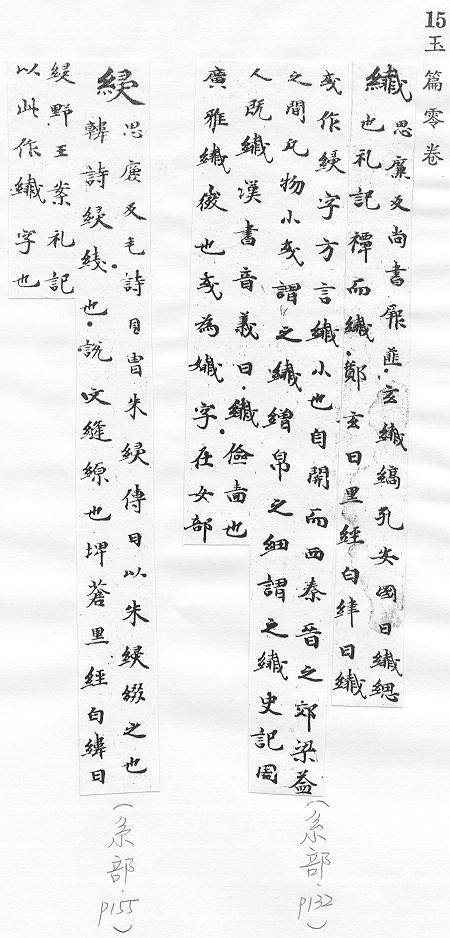 15 玉篇零卷
纖 思廉反尚書厥匪玄纖縞孔安國曰纖緦
也礼記禫而纖鄭玄曰黑經白緯曰纖
或作綅字方言纖小也自開而西秦晉之郊梁益
之間凡物小或謂之纖繒帛之細謂之纖史記周
人既纖漢書音義曰纖儉嗇也
廣雅纖微也或為孅字在女部
(糸部.p132)
綅 思廉反毛詩貝冑朱綅傳曰以朱綅綴之也
韓詩綅綫也說文縫線也埤蒼黑經白緯曰
綅野王案礼記
以此作纖字也
(糸部.p155)